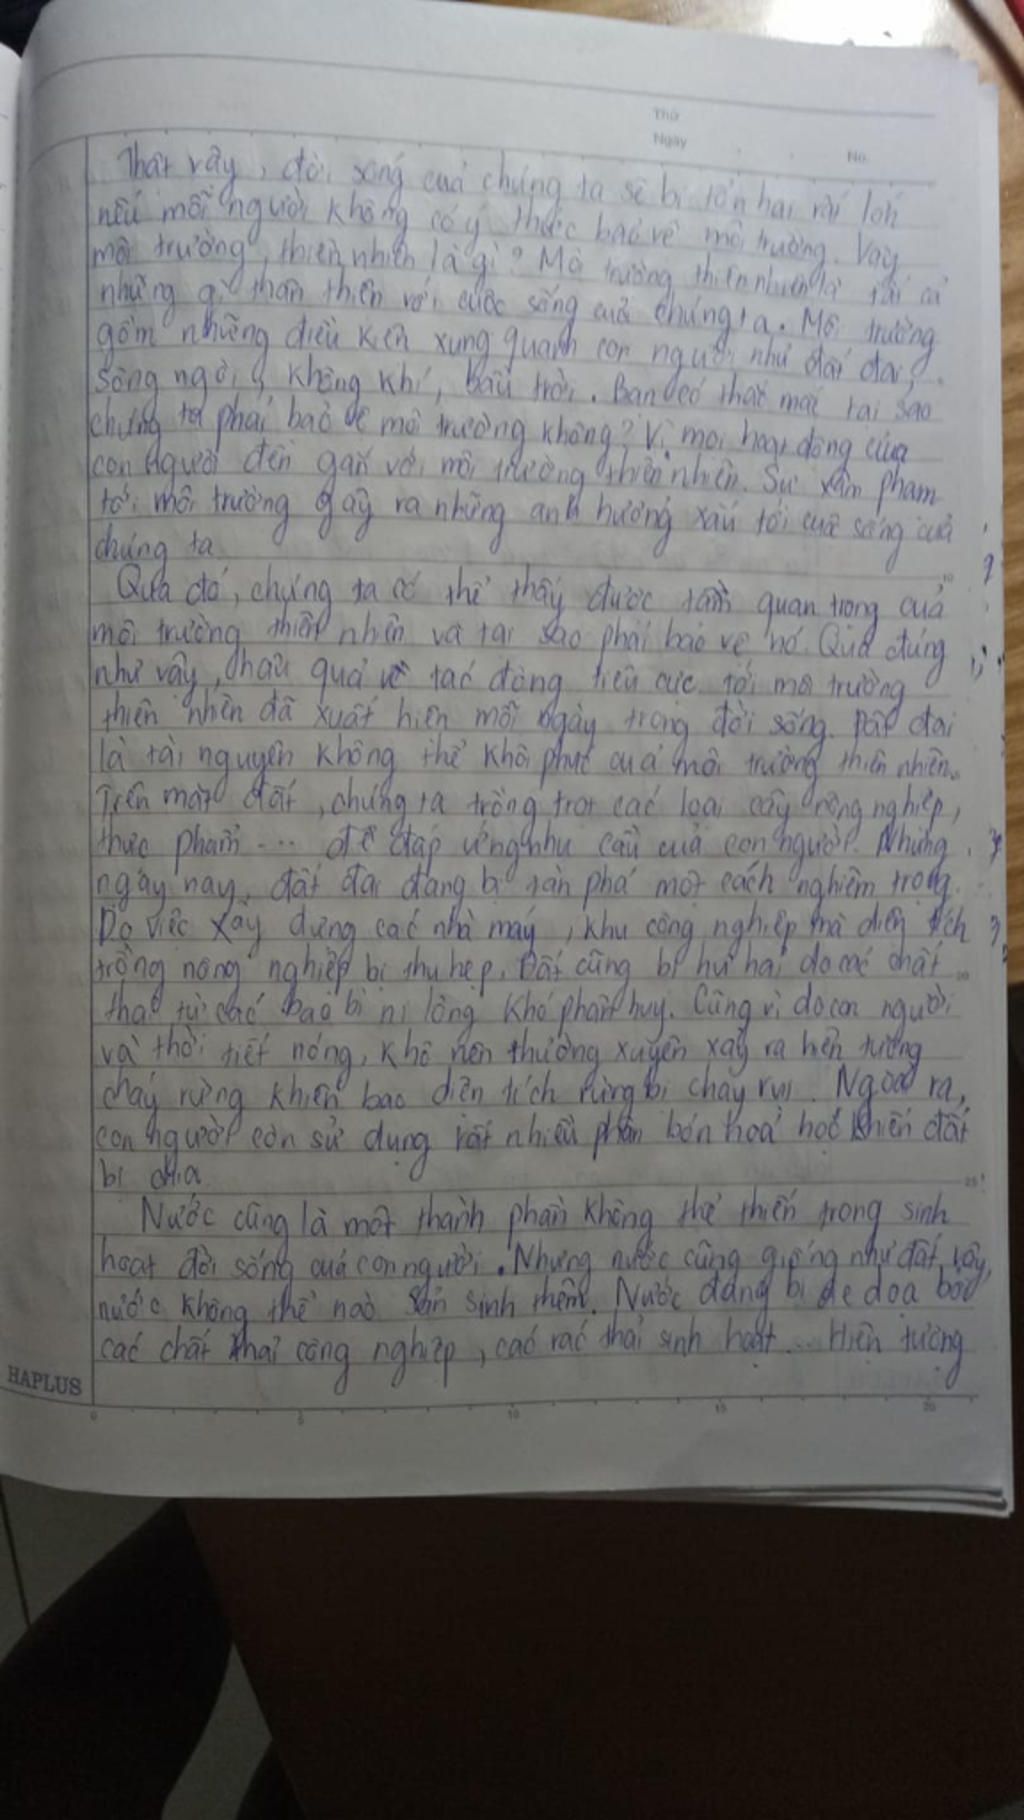 Thứ
Ngày
No.
Thật vậy, đời sống của chúng ta sẽ bị tổn hại rất lớn
nếu mỗi người không có ý thức bảo vệ môi trường. Vậy
môi trường thiên nhiên là gì? Môi trường thiên nhiên là tất cả
những gì thân thiện với cuộc sống của chúng ta. Môi trường
gồm những điều kiện xung quanh con người như đất đai,
sông ngòi, không khí, bầu trời. Bạn có thắc mắc tại sao
chúng ta phải bảo vệ môi trường không? Vì mọi hoạt động của
con người đến gắn với môi trường thiên nhiên. Sự xâm phạm
tới môi trường gây ra những ảnh hưởng xấu tới cuộc sống của
chúng ta
Qua đó, chúng ta có thể thấy được tầm quan trọng của
môi trường thiên nhiên và tại sao phải bảo vệ nó. Quả đúng
như vậy, hậu quả về tác động tiêu cực tới môi trường
thiên nhiên đã xuất hiện mỗi ngày trong đời sống. Đất đai
là tài nguyên không thể khôi phục của môi trường thiên nhiên.
Trên mặt đất, chúng ta trồng trọt các loại cây nông nghiệp,
thực phẩm ... để đáp ứng nhu cầu của con người. Nhưng
ngày nay, đất đai đang bị tàn phá một cách nghiêm trọng.
Do việc xây dựng các nhà máy, khu công nghiệp mà diện tích
trồng nông nghiệp bị thu hẹp. Đất cũng bị hư hại do các chất
thải từ các bao bì ni lông khó phân hủy. Cũng vì do con người
và thời tiết nóng, khô nên thường xuyên xảy ra hiện tượng
cháy rừng khiến bao diện tích rừng bị cháy rụi. Ngoài ra,
con người còn sử dụng rất nhiều phân bón hoá học khiến đất
bị chua
Nước cũng là một thành phần không thể thiếu trong sinh
hoạt đời sống của con người. Nhưng nước cũng giống như đất vậy,
nước không thể nào sản sinh thêm. Nước đang bị đe dọa bởi
các chất thải công nghiệp, các rác thải sinh hoạt ... Hiện tượng
HAPLUS
0 5 10 15 20